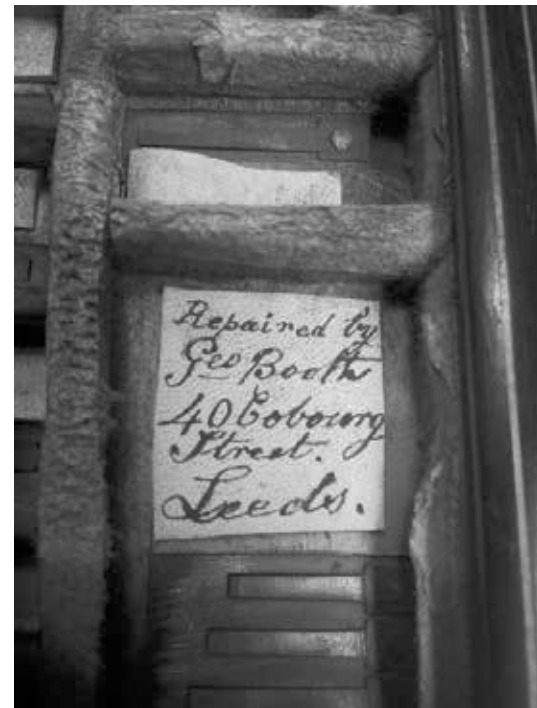 Repaired by
Geo Booth
40 Cobourg
Street.
Leeds.